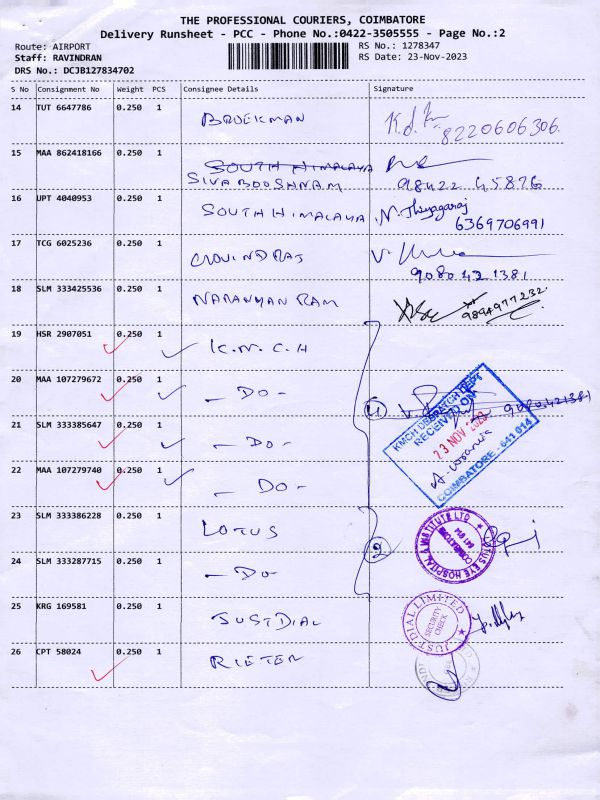 THE PROFESSIONAL COURIERS, COIMBATORE
Delivery Runsheet - PCC - Phone No.:0422-3505555 - Page No.:2
Route: AIRPORT RS No.: 1278347
Staff: RAVINDRAN RS Date: 23-Nov-2023
DRS No.: DCJB127834702
S No Consignment No Weight PCS Consignee Details Signature
14 TUT 6647786 0.250 1 BROEKMAN
8220606306.
15 MAA 862418166 0.250 1 SOUTH HIMALAYA
SIVABOOSHNAM 98422 45876
16 UPT 4040953 0.250 1 SOUTH HIMALAYA N. Thiyagaraj
6369706991
17 TCG 6025236 0.250 1 GOVINDRAJ
9080421381
18 SLM 333425536 0.250 1 NARAYANAN RAM 9894977232
19 HSR 2907051 0.250 1 K.M.C.H
20 MAA 107279672 0.250 1 - DO - 4 9080421381
21 SLM 333385647 0.250 1 - DO -
22 MAA 107279740 0.250 1 - DO -
KMCH DESPATCH DEPT
RECEIVED ON
23 NOV 2023
COIMBATORE - 641 014
23 SLM 333386228 0.250 1 LOTUS
24 SLM 333287715 0.250 1 - DO - 2
LOTUS EYE HOSPITAL & INSTITUTE LTD
COIMBATORE
641 014
25 KRG 169581 0.250 1 JUSTDIAL
JUST DIAL LIMITED
SECURITY
CHECK
26 CPT 58024 0.250 1 RIETER